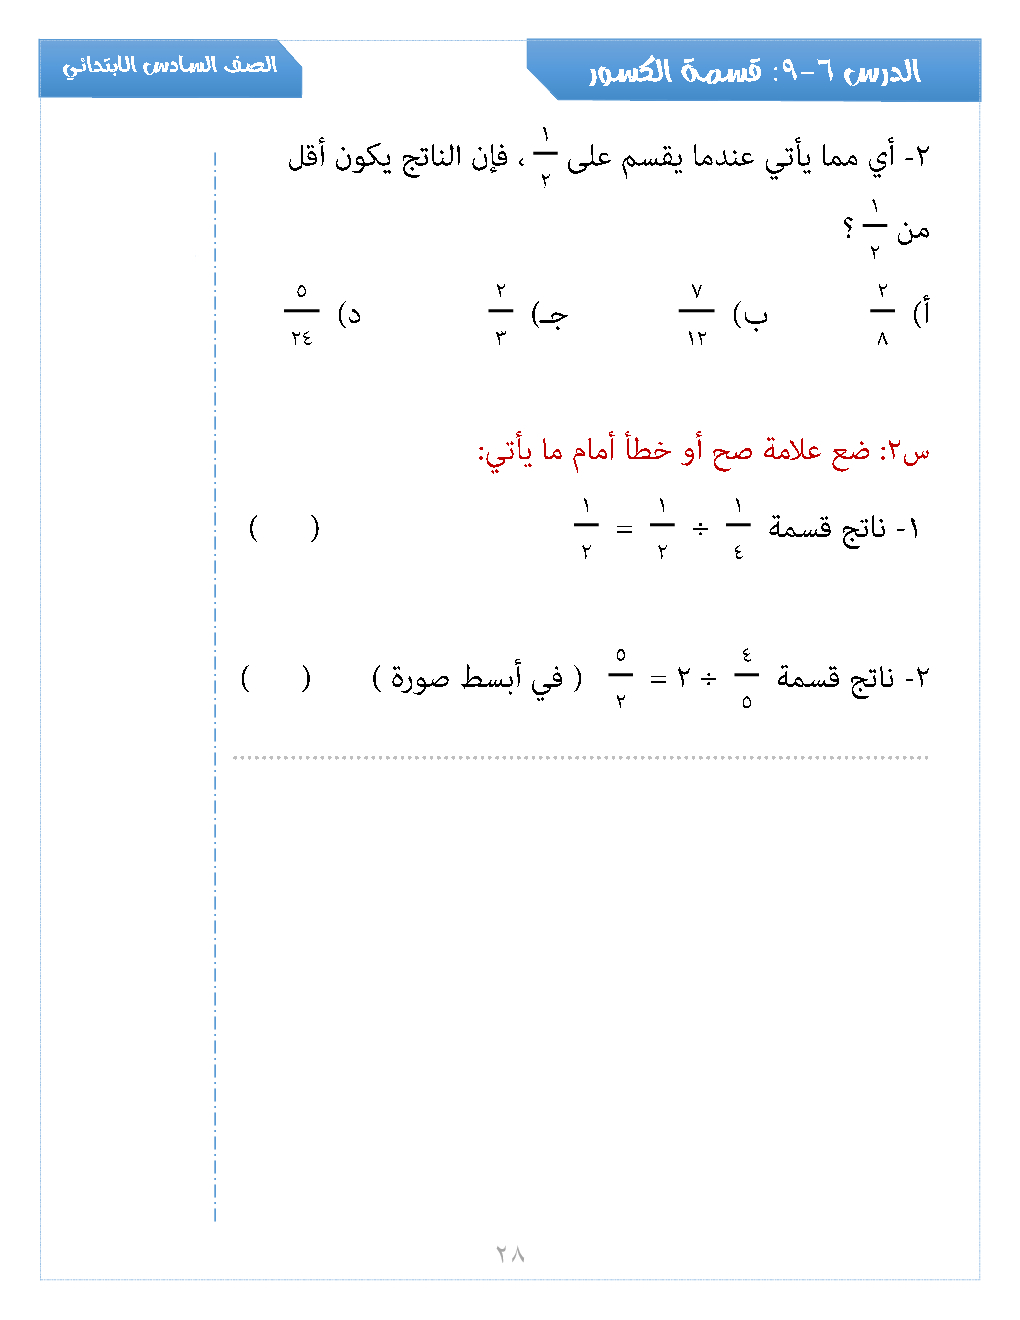 الدرس ٦-٩: قسمة الكسور
الصف السادس الابتدائي
٢- أي مما يأتي عندما يقسم على ١/٢ ، فإن الناتج يكون أقل
من ١/٢ ؟
أ) ٢/٨ ب) ٧/١٢ جـ) ٢/٣ د) ٥/٢٤
س٢: ضع علامة صح أو خطأ أمام ما يأتي:
١- ناتج قسمة ١/٤ ÷ ١/٢ = ١/٢ ( )
٢- ناتج قسمة ٤/٥ ÷ ٢ = ٥/٢ ( في أبسط صورة ) ( )
٢٨